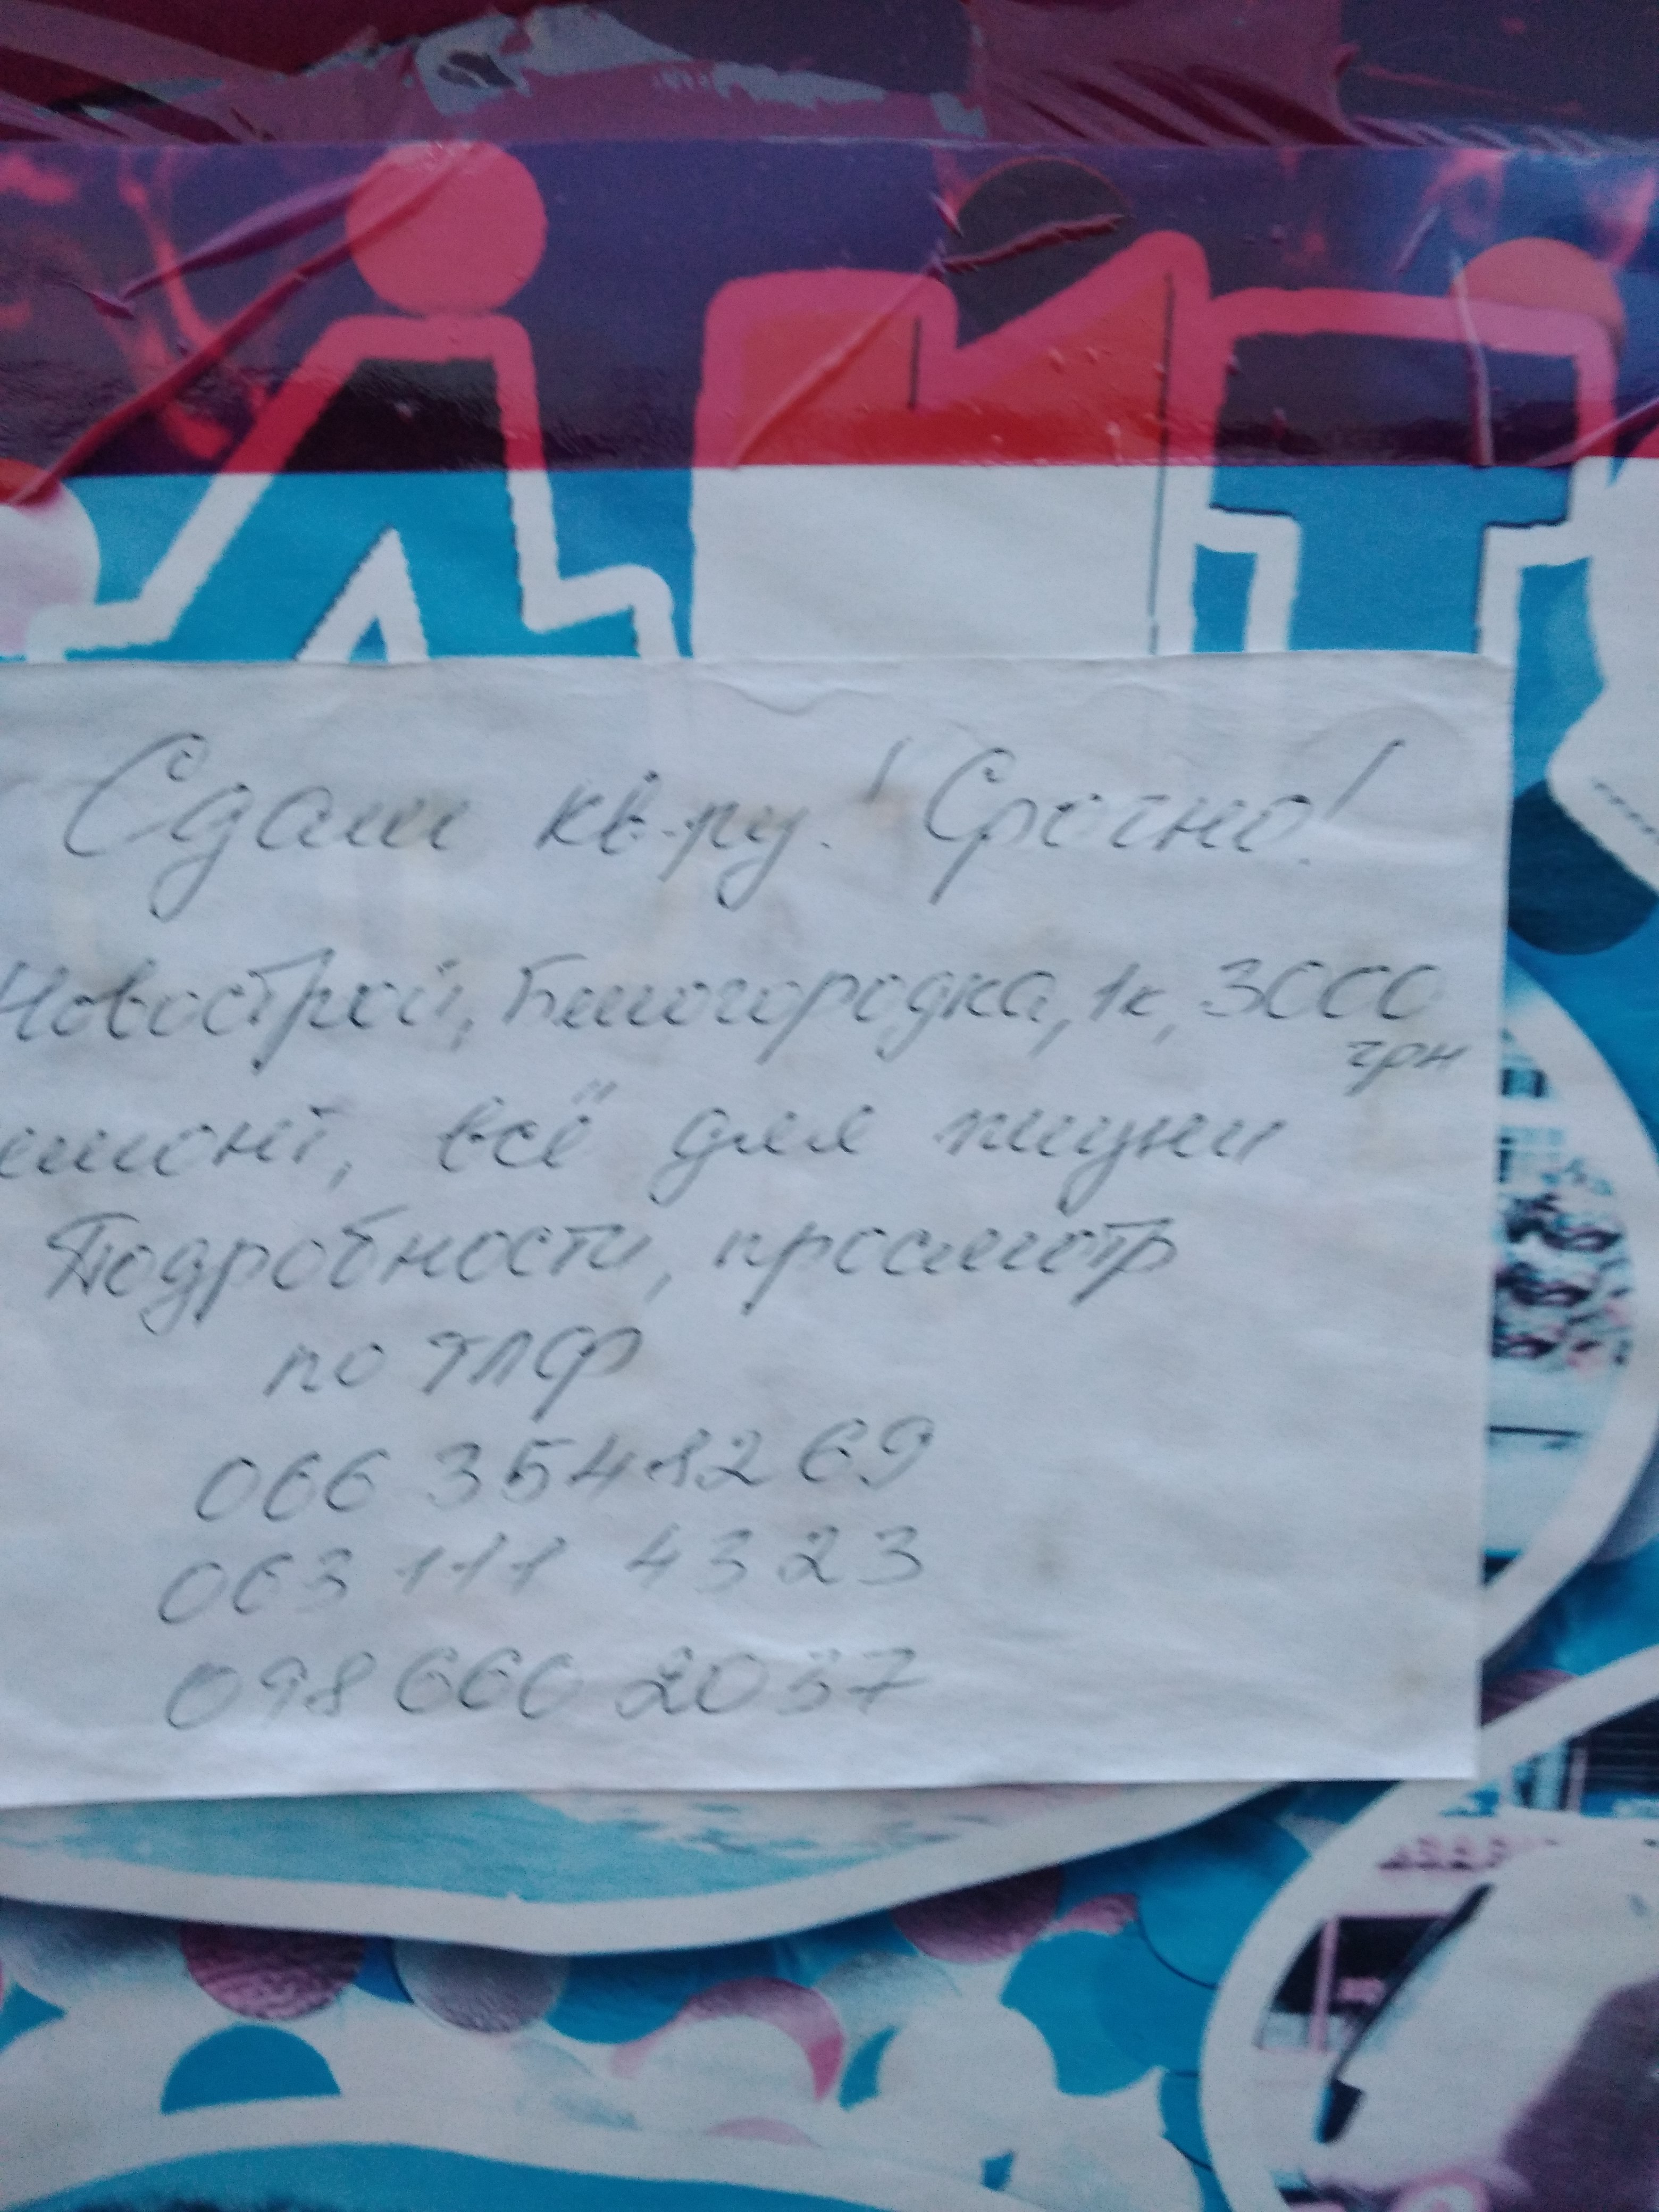 Сдам кв-ру! Срочно!
Новострой, Белогородка, 1к, 3000
грн
емонт, всё для жизни
Подробности, просмотр
по тлф
066 354 82 69
063 111 4323
098 660 2037